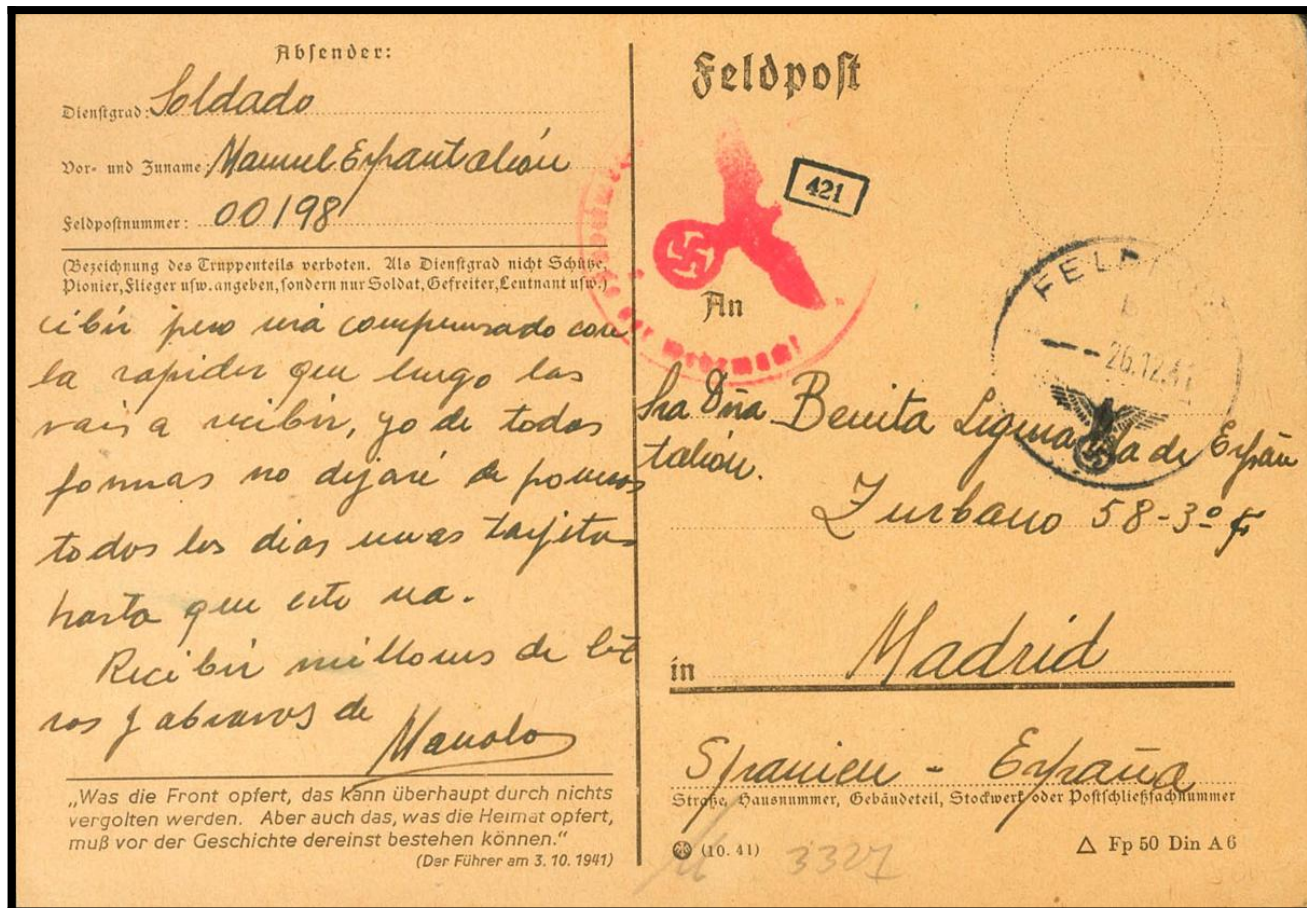 Absender:
Dienstgrad: Soldado
Vor- und Zuname: Manuel Espantaleón
Feldpostnummer: 00198
(Bezeichnung des Truppenteils verboten. Als Dienstgrad nicht Schütze,
Pionier, Flieger usw. angeben, sondern nur Soldat, Gefreiter, Leutnant usw.)
cibir pero será compensado con
la rapidez que luego las
vais a recibir, yo de todas
formas no dejaré de poneros
todos los dias unas tarjitas
hasta que este sea.
Recibir millones de bés
sos y abrazos de
Manolo
„Was die Front opfert, das kann überhaupt durch nichts
vergolten werden. Aber auch das, was die Heimat opfert,
muß vor der Geschichte dereinst bestehen können.“
(Der Führer am 3. 10. 1941)
Feldpost
421
An
der Wehrmacht
FELDPOST
b
26.12.41
Sra Dña Benita de Espan
taleón.
Zurbano 58-3º
in Madrid
Spanien - España
Straße, Hausnummer, Gebäudeteil, Stockwerk oder Postschließfachnummer
(10. 41)
3327
△ Fp 50 Din A 6